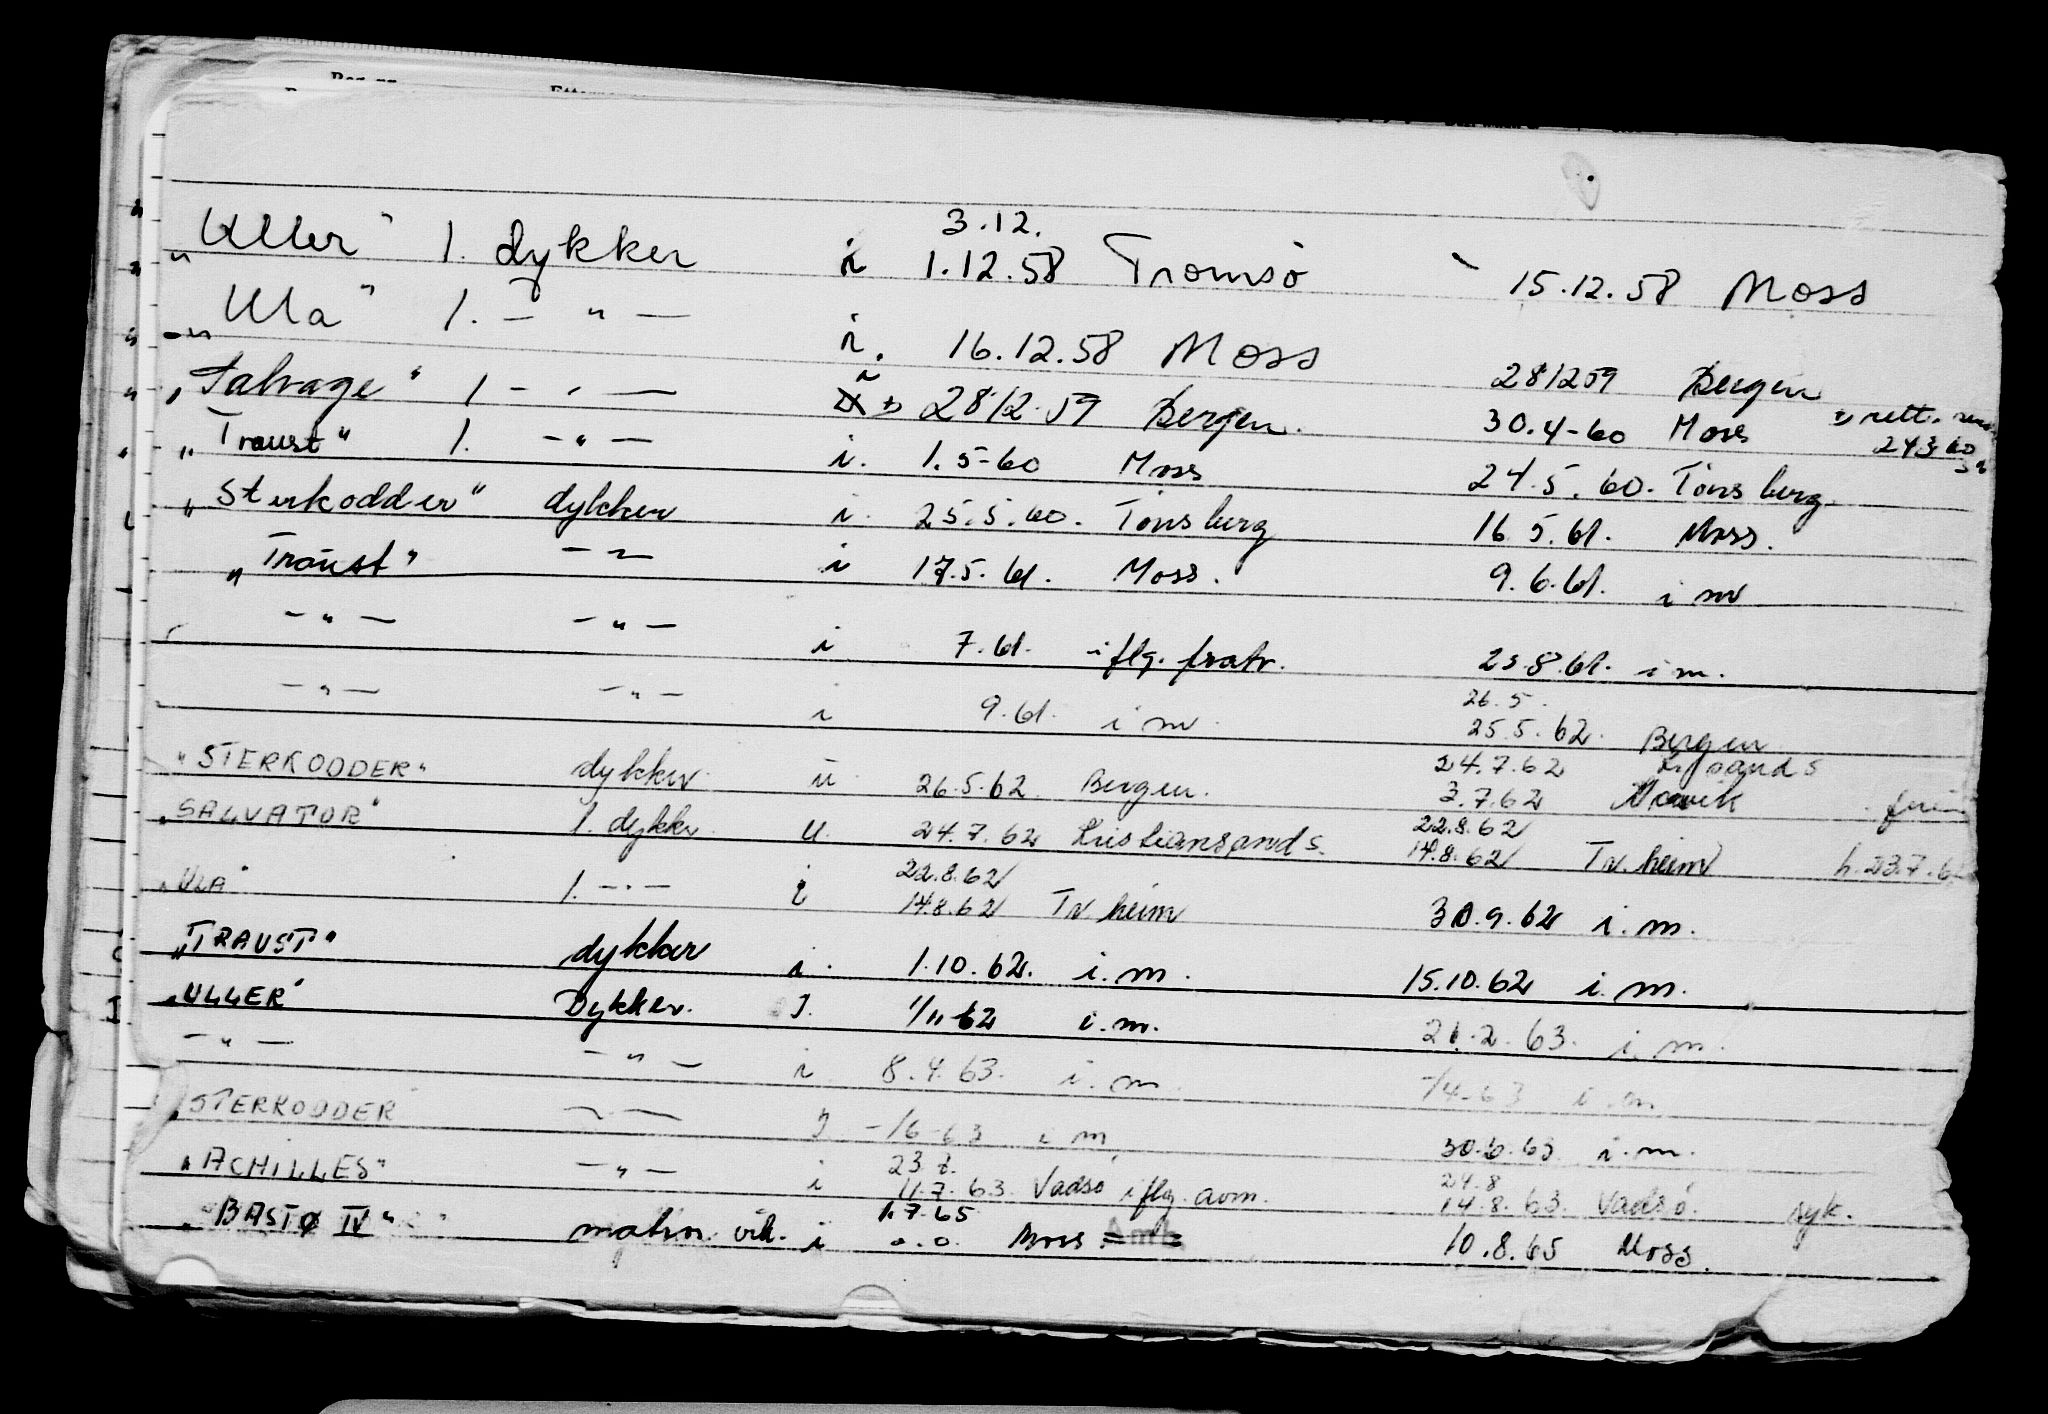 3.12.
"Uller" 1. dykker i 1.12.58 Tromsö 15.12.58 Moss
"Ula" 1. — " — i. 16.12.58 Moss 281259 Bergen
"Salvage" 1 — " — i 2812.59 Bergen. 30.4-60 Moss rett.
24360
"Traust" 1. — " — i. 1.5-60 Moss 24.5.60. Tönsberg
"Sterkodder" dykker i. 25.5.60. Tönsberg 16.5.61. Moss.
"Traust" — " — i 17.5.61. Moss. 9.6.61. i m
— " — — " — i 7.61. iflg. fratr. 25.8.61. i m.
26.5.
— " — — " — i 9.61. i m. 25.5.62. Bergen
24.7.62 Kr.sand S
"STERKODDER" dykker ü 26.5.62 Bergen. 3.7.62
22.8.62
"SALVATOR" 1. dykker u. 24.7.62 Kristiansand S. 14.8.62 Tr.heim h. 23.7.62
22.8.62
"ULA" 1. — " — i 14.8.62 Tr.heim 30.9.62 i.m.
"TRAUST" dykker i. 1.10.62. i.m. 15.10.62 i.m.
"ULLER" Dykker. I. 1/11-62 i.m. 21.2.63. i.m.
— " — — " — i 8.4.63. i.m. -/4-63 i.m.
"STERKODDER" — " — I -/6-63 i m 30.6.63 i.m.
23.7. 24.8
"ACHILLES" — " — i 11.7.63. Vadsö iflg. avm. 14.8.63. Vadsö. syk.
1.7.65
"BASTØ IV" matros vik. i o.o. Moss 10.8.65 Moss.